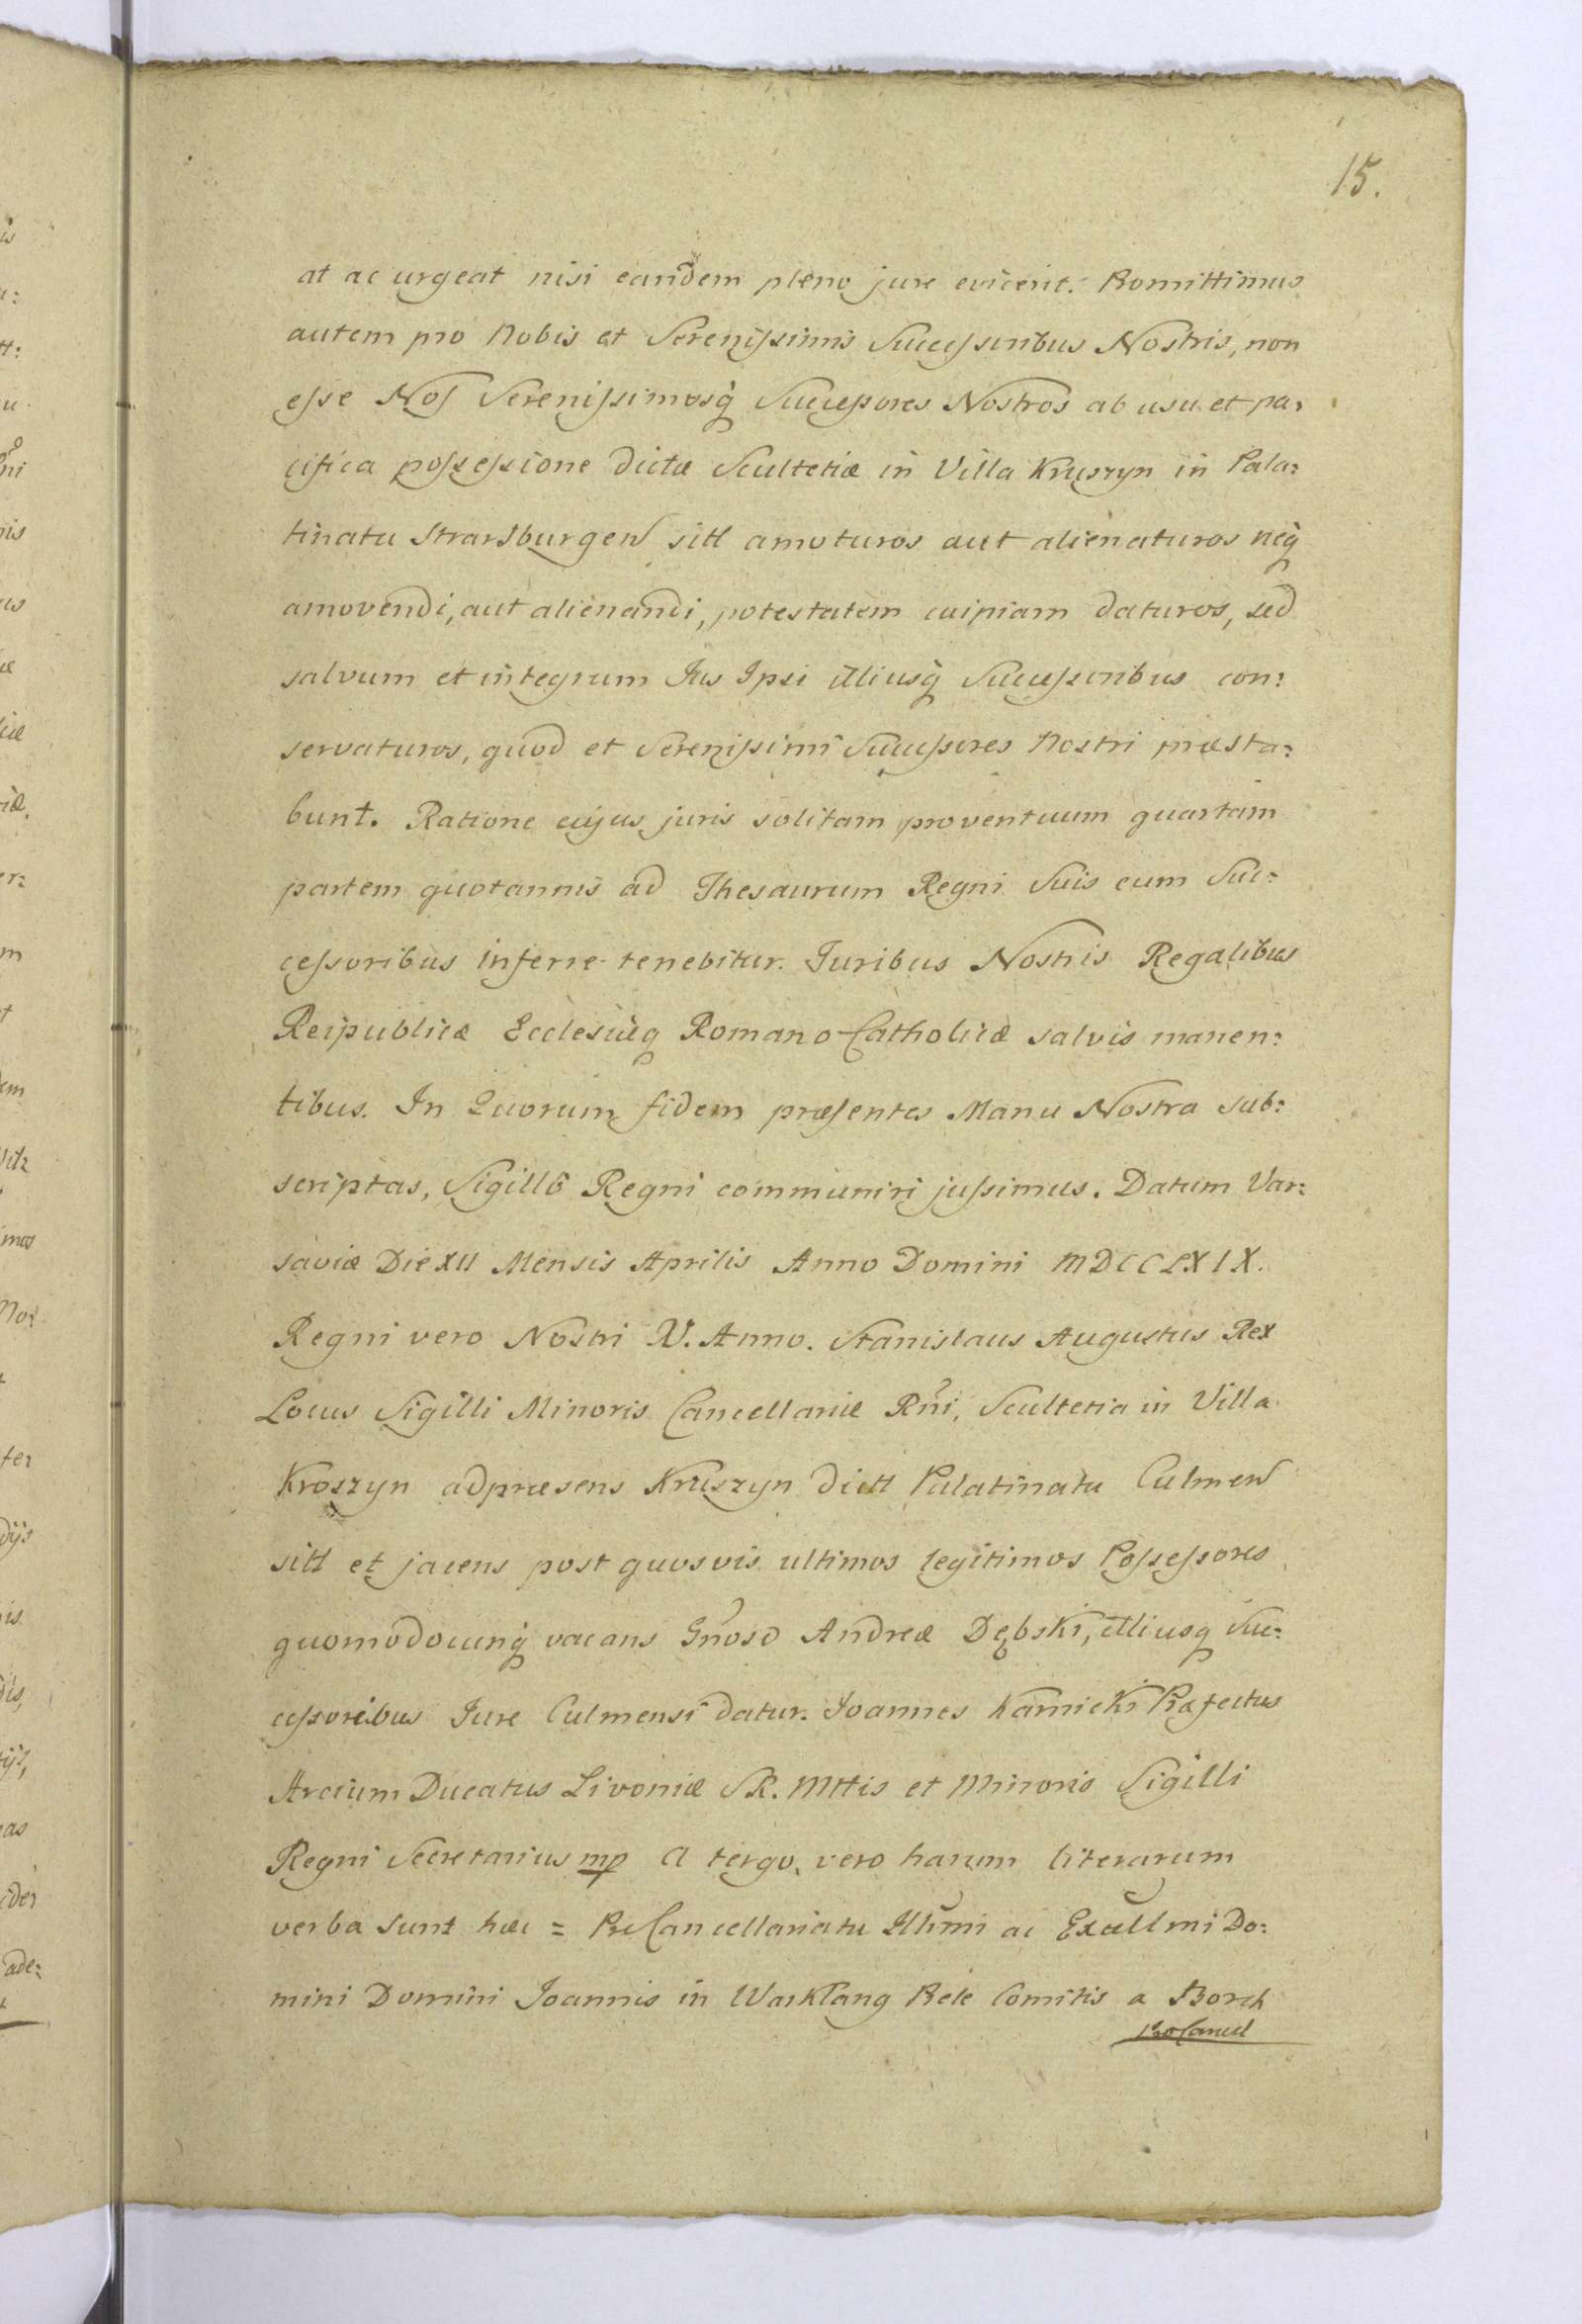 15.
at ac urgeat nisi eandem pleno jure evicerit. Promittimus
autem pro Nobis et Serenissimis Successoribus Nostris, non
esse Nos Serenissimosq̀ Successores Nostros ab usu et pa:
cifica possessione dictæ Scultetiæ in Villa Kruszyn in Pala:
tinatu Strasburgen sitt amoturos aut alienaturos neq̀
amovendi, aut alienandi, potestatem cuipiam daturos, sed
salvum et integrum Jus Ipsi illiusq̀ Successoribus con:
servaturos, quod et Serenissimi Successores Nostri præsta:
bunt. Ratione cujus juris solitam proventuum quartam
partem quotannis ad Thesaurum Regni Suis cum Suc:
cessoribus inferre tenebitur. Juribus Nostris Regalibus
Reipublicæ Ecclesiæq Romano-Catholicæ salvis manen:
tibus. In Quorum fidem præsentes Manu Nostra sub:
scriptas, Sigillo Regni communiri jussimus. Datum Var:
saviæ Die XII Mensis Aprilis Anno Domini MDCCLXIX.
Regni vero Nostri V. Anno. Stanislaus Augustus Rex
Locus Sigilli Minoris Cancellariæ Rñi, Scultetia in Villa
Kroszyn adpræsens Kruszyn dictt Palatinatu Culmen
sitt et jacens post quosvis ultimos legitimos Possessores
quomodocunq̀ vacans Gñoso Andreæ Dębski, illiusq Suc:
cessoribus Jure Culmensi datur. Joannes Karnicki Præfectus
Arcium Ducatus Livoniæ S.R. Mttis et Minoris Sigilli
Regni Secretarius mp A tergo vero harum literarum
verba sunt hæc = ProCancellariatu Illmi ac Excellmi Do:
mini Domini Joannis in Warklang Rele Comitis a Borch
ProCancel